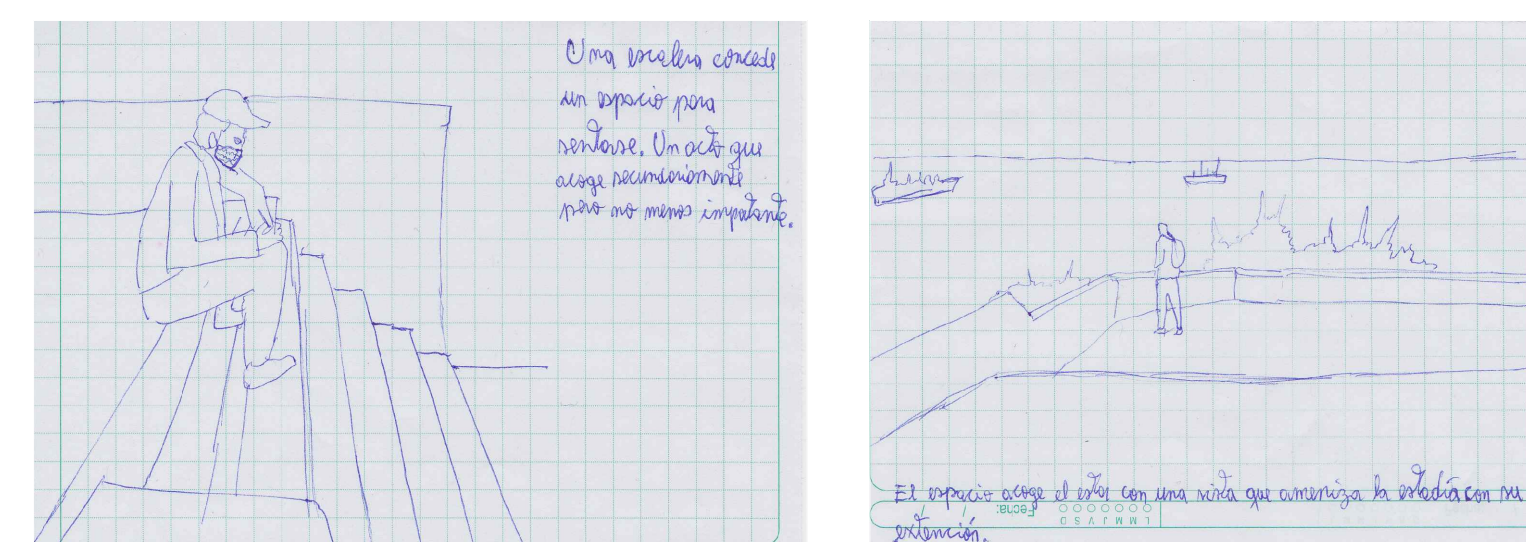 Una escalera concede
un espacio para
sentarse. Un acto que
acoge secundariamente
pero no menos impotante.
El espacio acoge el estar con una vista que ameniza la estadía con su
extención.
Fecha:
L M M J V S D